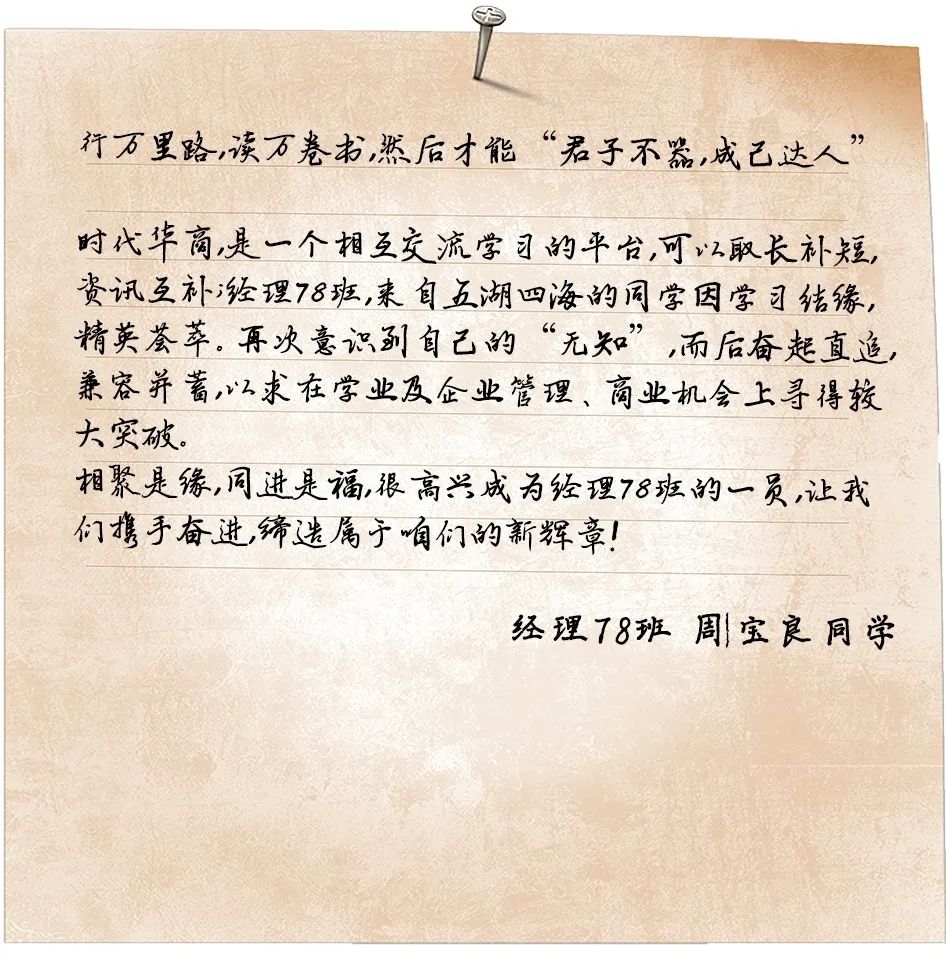 行万里路,读万卷书,然后才能“君子不器,成己达人”
时代华商,是一个相互交流学习的平台,可以取长补短,
资讯互补;经理78班,来自五湖四海的同学因学习结缘,
精英荟萃。再次意识到自己的“无知”,而后奋起直追,
兼容并蓄,以求在学业及企业管理、商业机会上寻得较
大突破。
相聚是缘,同进是福,很高兴成为经理78班的一员,让我
们携手奋进,缔造属于咱们的新辉章!
经理78班 周|宝良同学